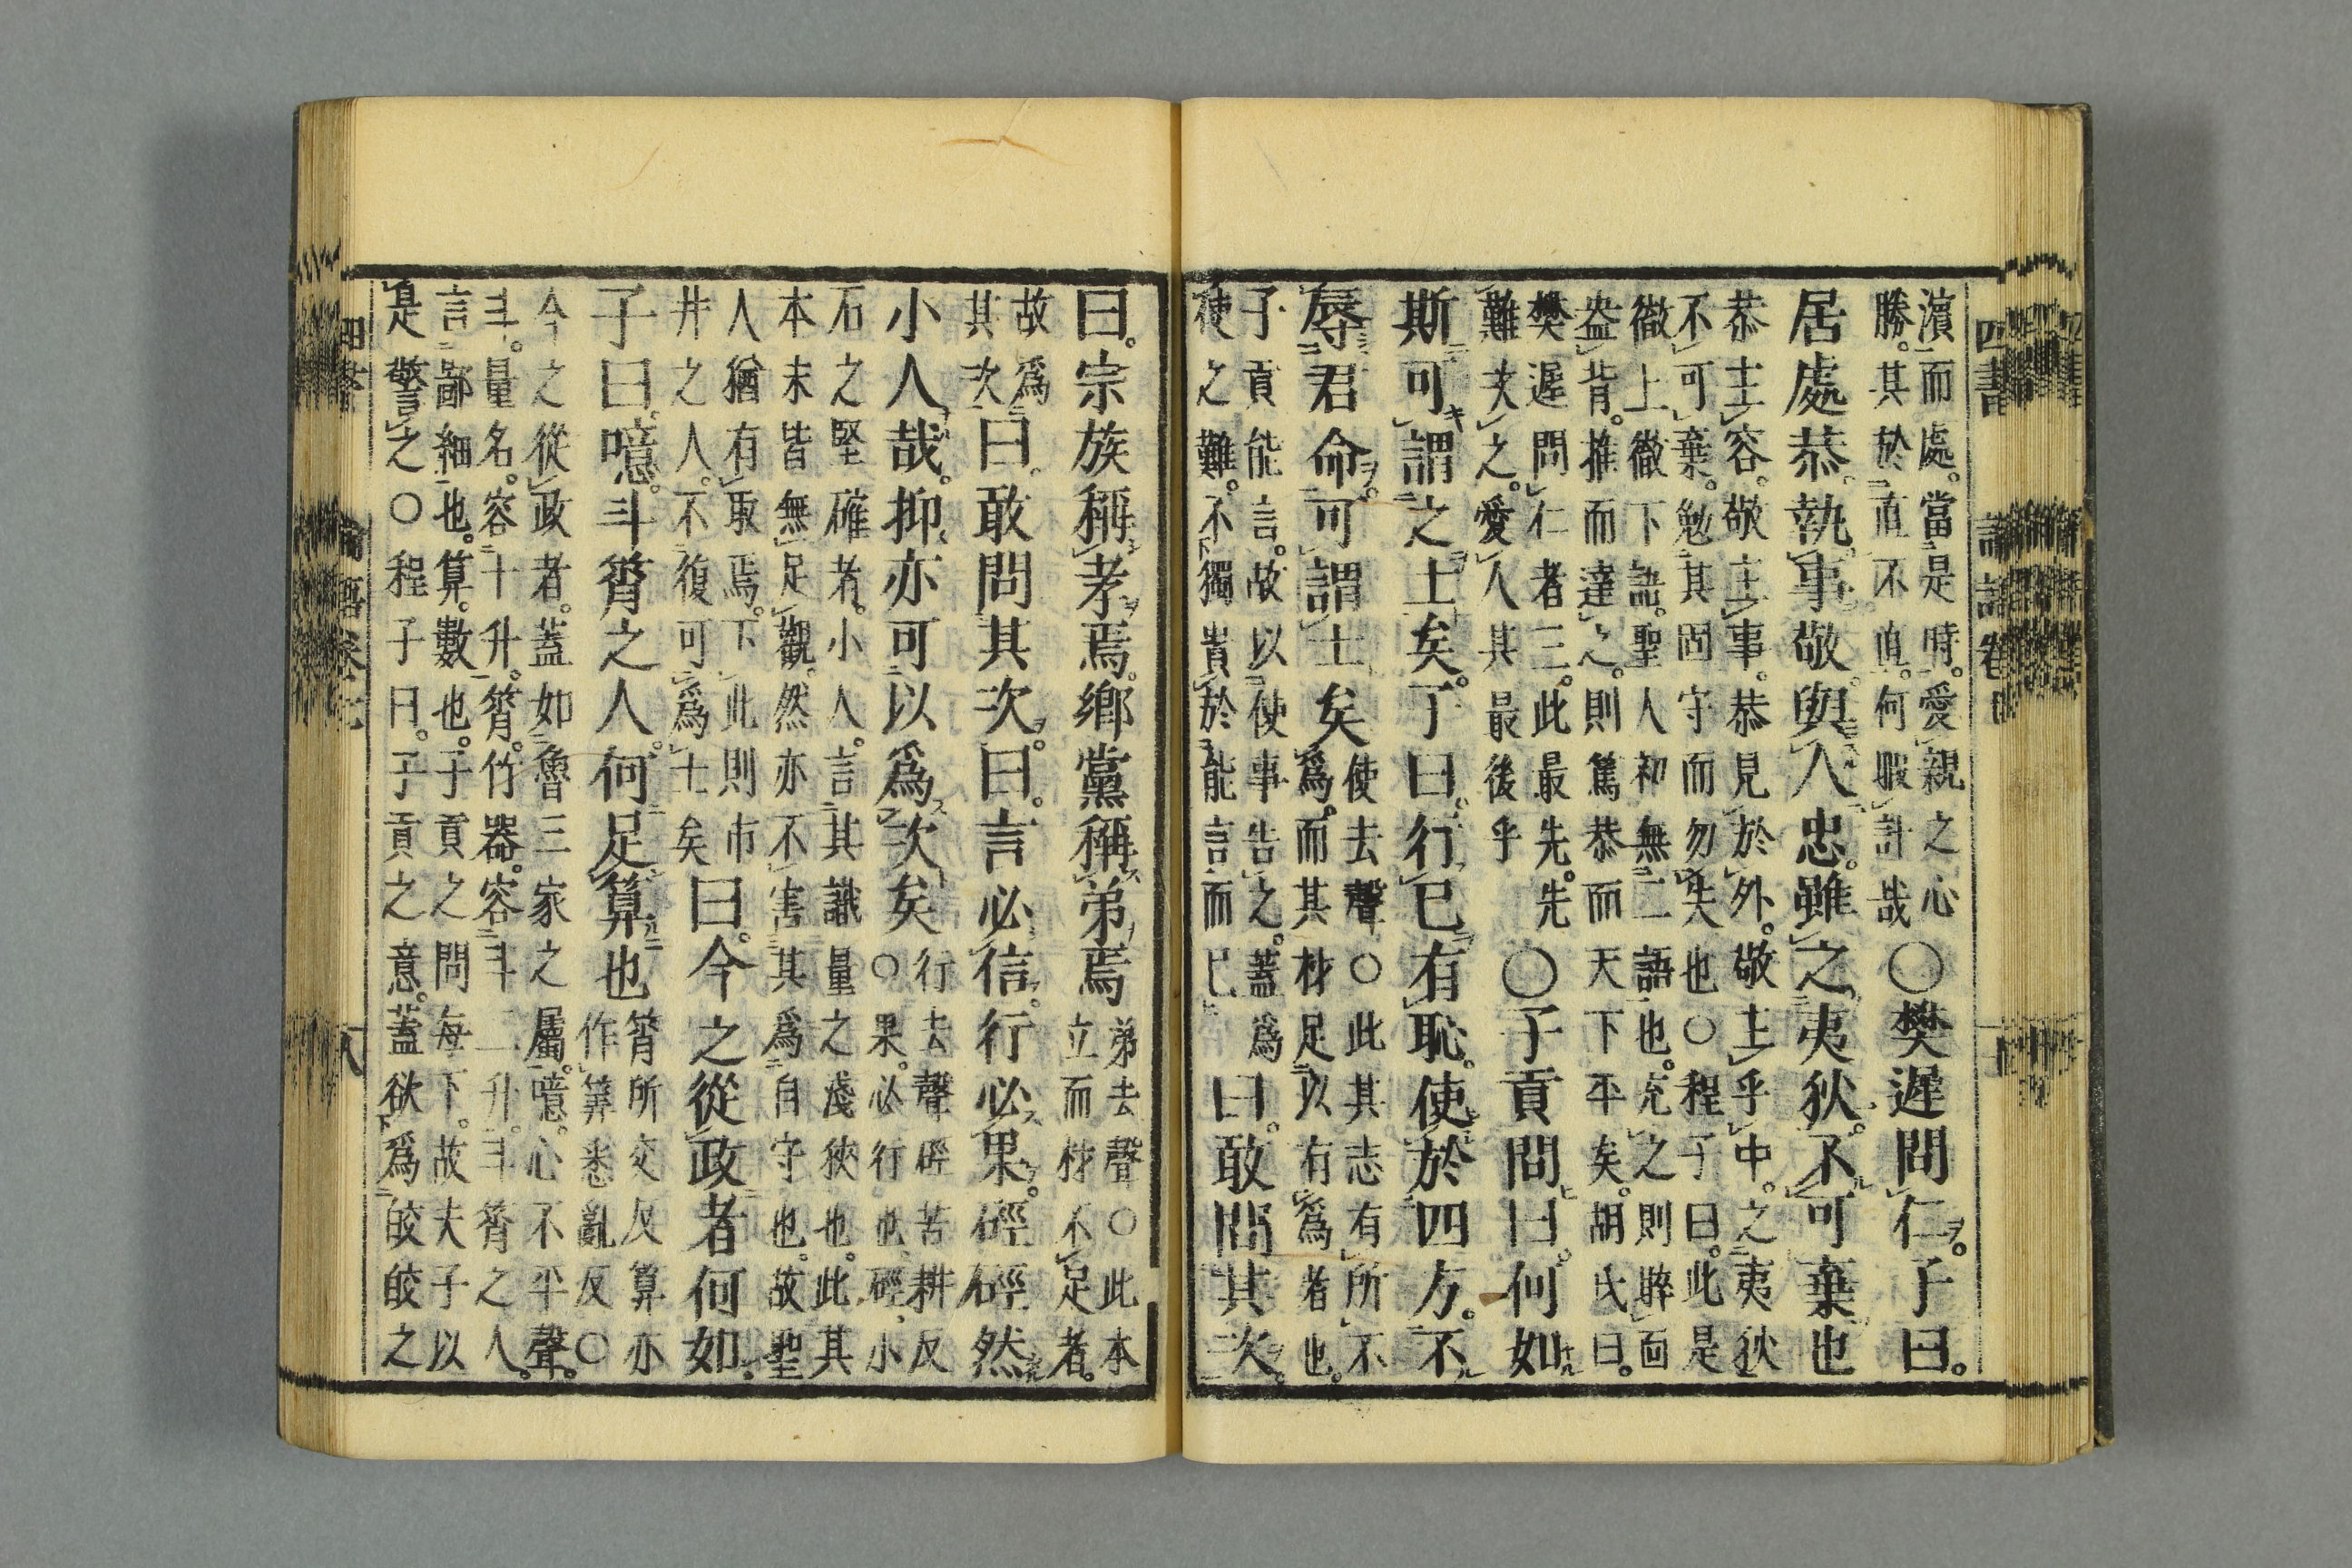 濵而處。當是時。愛親之心
勝。其於直不直。何暇計哉
○樊遲問仁。子曰。
居處恭。執事敬。與人忠。雖之夷狄。不可棄也
恭主容。敬主事。恭見於外。敬主乎中。之夷狄
不可棄。勉其固守而勿失也○程子曰。此是
徹上徹下語。聖人初無二語也。充之則睟面
盎背。推而達之。則篤恭而天下平矣。胡氏曰。
樊遲問仁者三。此最先。先
難次之。愛人其最後乎
○子貢問曰。何如
斯可謂之士矣。子曰。行已有恥。使於四方。不
辱君命。可謂士矣
使去聲○此其志有所不
爲。而其材足以有爲者也。
子貢能言。故以使事告之。蓋爲
使之難。不獨貴於能言而已
曰。敢問其次。
曰。宗族稱孝焉。鄉黨稱弟焉
弟去聲○此本
立而材不足者。
故爲
其次
曰。敢問其次。曰。言必信。行必果。硜硜然
小人哉。抑亦可以爲次矣
行去聲硜苦耕反
○果。必行也。硜。小
石之堅確者。小人。言其識量之淺狹也。此其
本末皆無足觀。然亦不害其爲自守也。故聖
人猶有取焉。下此則市
井之人。不復可爲士矣
曰。今之從政者何如。
子曰。噫。斗筲之人。何足算也
筲所交反算亦
作筭悉亂反○
今之從政者。蓋如魯三家之屬。噫。心不平聲。
斗。量名。容十升。筲。竹器。容斗二升。斗筲之人。
言鄙細也。算。數也。子貢之問每下。故夫子以
是警之○程子曰。子貢之意。蓋欲爲皎皎之